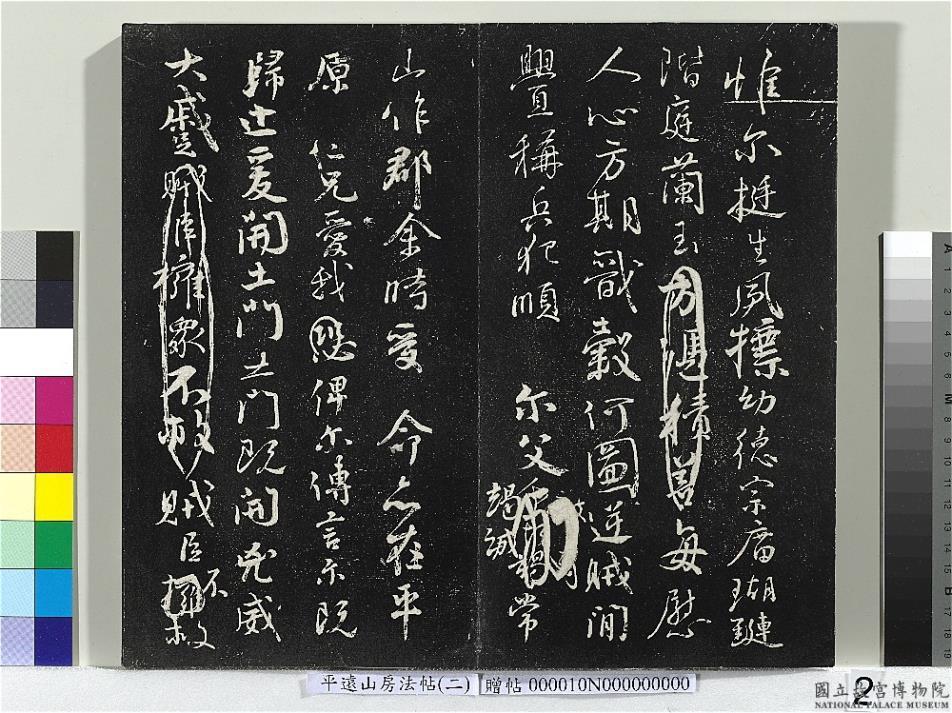 惟尔挺生夙標幼德宗廟瑚璉
階庭蘭玉方憑積善每慰
人心方期戩穀何圖逆賊閒
舋稱兵犯順　尔父竭誠常
山作郡余時受　命亦在平
原　仁兄愛我俾尔傳言尔既
歸止爰開土門土門既開兇威
大蹙賊臣擁衆不救賊臣不擁救
平遠山房法帖(二) 贈帖 000010N000000000
2
國立故宮博物院
NATIONAL PALACE MUSEUM